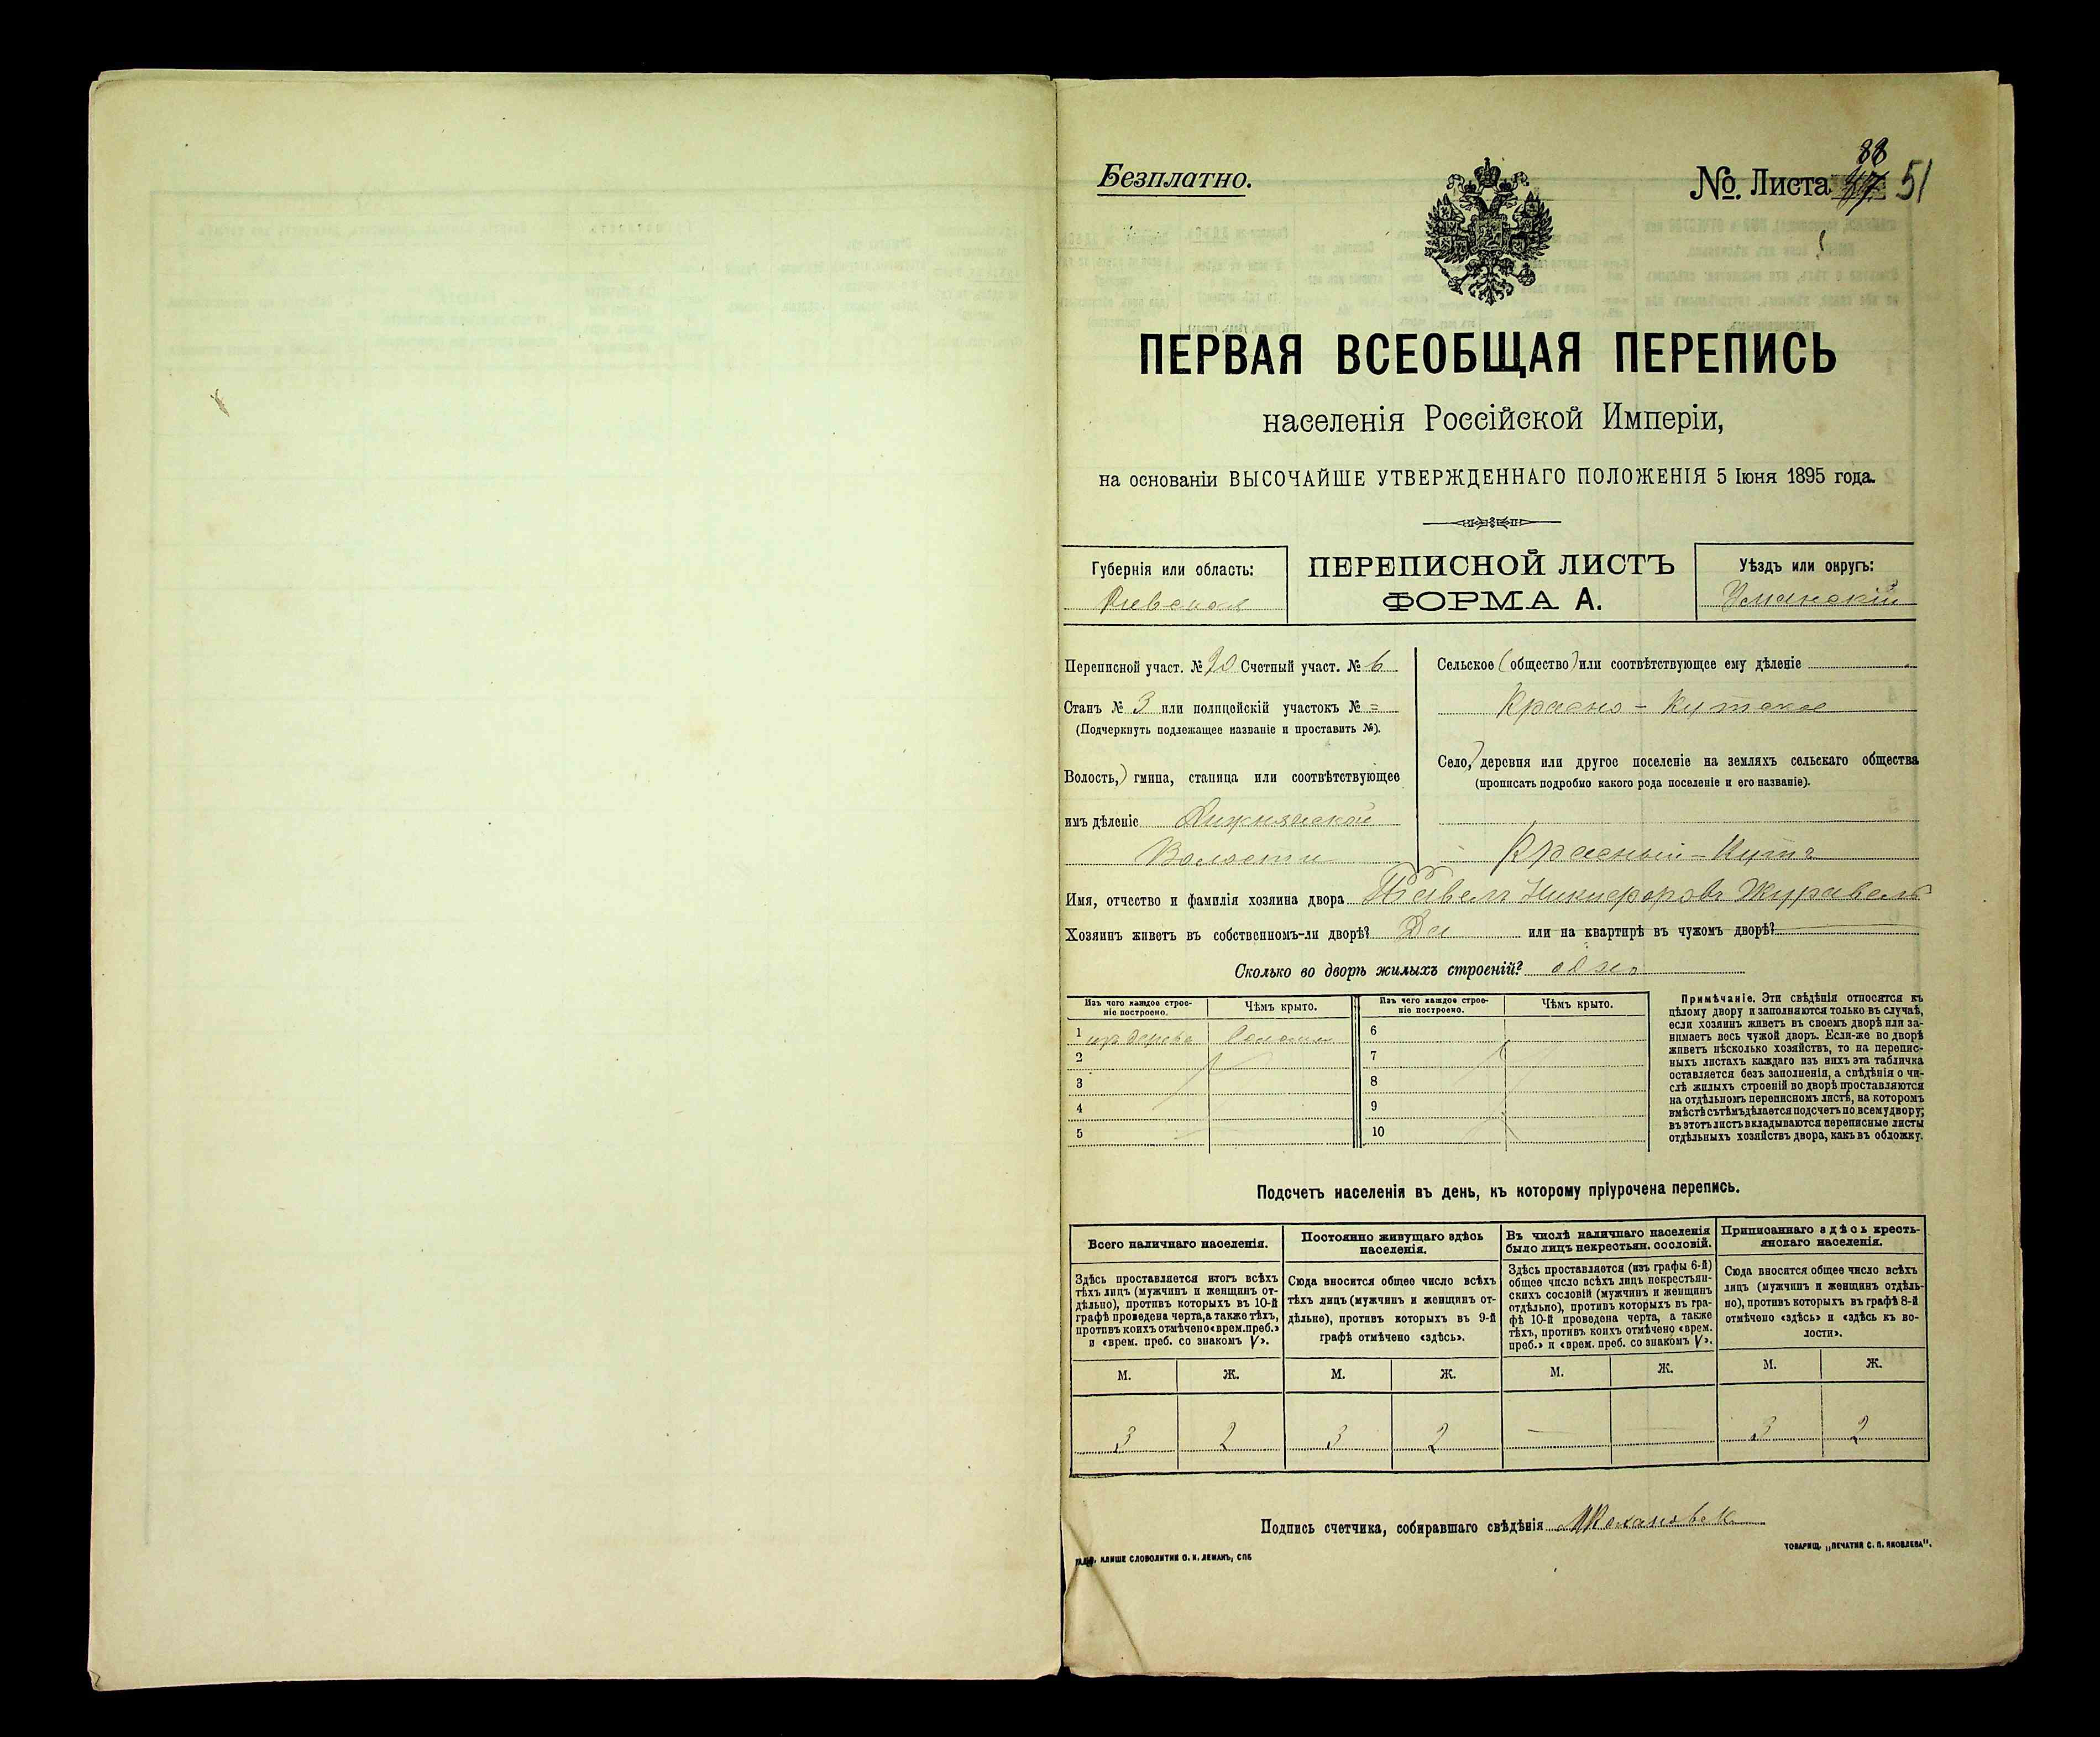 Безплатно.
№. Листа 88 51
ПЕРВАЯ ВСЕОБЩАЯ ПЕРЕПИСЬ
населенія Россійской Имперіи,
на основаніи ВЫСОЧАЙШЕ УТВЕРЖДЕННАГО ПОЛОЖЕНІЯ 5 Іюня 1895 года.
Губернія или область:
Кіевская
ПЕРЕПИСНОЙ ЛИСТЪ
ФОРМА А.
Уѣздъ или округъ:
Уманскій
Переписной участ. № 20 Счетный участ. № 6
Станъ № 3 или полицейскій участокъ № =
(Подчеркнуть подлежащее названіе и проставить №).
Волость,) гмина, станица или соотвѣтствующее
имъ дѣленіе
Волости
Сельское (общество) или соотвѣтствующее ему дѣленіе
Красно-Кутское
Село,) деревня или другое поселеніе на земляхъ сельскаго общества
(прописать подробно какого рода поселеніе и его названіе).
Красный-Кутъ
Имя, отчество и фамилія хозяина двора Павелъ Никифоровъ Журавель
Хозяинъ живетъ въ собственномъ-ли дворѣ? Да или на квартирѣ въ чужомъ дворѣ?
Сколько во дворѣ жилыхъ строеній? одно
Изъ чего каждое строеніе построено. Чѣмъ крыто. Изъ чего каждое строеніе построено. Чѣмъ крыто.
1 изъ дерева соломой 6
2 7
3 8
4 9
5 10
Примѣчаніе. Эти свѣдѣнія относятся къ
цѣлому двору и заполняются только въ случаѣ,
если хозяинъ живетъ въ своемъ дворѣ или за-
нимаетъ весь чужой дворъ. Если-же во дворѣ
живетъ нѣсколько хозяйствъ, то на перепис-
ныхъ листахъ каждаго изъ нихъ эта табличка
оставляется безъ заполненія, а свѣдѣнія о чи-
слѣ жилыхъ строеній во дворѣ проставляются
на отдѣльномъ переписномъ листѣ, на которомъ
вмѣстѣ съ тѣмъ дѣлается подсчетъ по всему двору;
въ этотъ листъ вкладываются переписные листы
отдѣльныхъ хозяйствъ двора, какъ въ обложку.
Подсчетъ населенія въ день, къ которому пріурочена перепись.
Всего наличнаго населенія.
Здѣсь проставляется итогъ всѣхъ
тѣхъ лицъ (мужчинъ и женщинъ от-
дѣльно), противъ которыхъ въ 10-й
графѣ проведена черта, а также тѣхъ,
противъ коихъ отмѣчено «врем. преб.»
и «врем. преб. со знакомъ V».
Постоянно живущаго здѣсь
населенія.
Сюда вносится общее число всѣхъ
тѣхъ лицъ (мужчинъ и женщинъ от-
дѣльно), противъ которыхъ въ 9-й
графѣ отмѣчено «здѣсь».
Въ числѣ наличнаго населенія
было лицъ некрестьян. сословій.
Здѣсь проставляется (изъ графы 6-й)
общее число всѣхъ лицъ некрестьян-
скихъ сословій (мужчинъ и женщинъ
отдѣльно), противъ которыхъ въ гра-
фѣ 10-й проведена черта, а также
тѣхъ, противъ коихъ отмѣчено «врем.
преб.» и «врем. преб. со знакомъ V».
Приписаннаго здѣсь кресть-
янскаго населенія.
Сюда вносится общее число всѣхъ
лицъ (мужчинъ и женщинъ отдѣль-
но), противъ которыхъ въ графѣ 8-й
отмѣчено «здѣсь» и «здѣсь къ во-
лости».
М. Ж. М. Ж. М. Ж. М. Ж.
3 2 3 2 — — 3 2
Подпись счетчика, собиравшаго свѣдѣнія
КЛИШЕ СЛОВОЛИТНИ О. И. ЛЕМАНЪ, СПБ
ТОВАРИЩ. „ПЕЧАТНЯ С. П. ЯКОВЛЕВА".